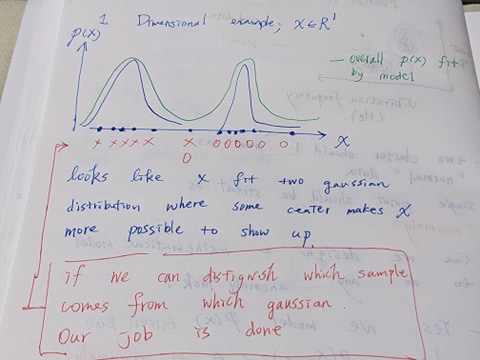 1 Dimensional example, x∈R¹
P(x)
— overall p(x) fit
by model
x x x x x x o o o o o o o
o
x
looks like x fit two gaussian
distribution where some center makes x
more possible to show up.
if we can distigwish which sample
comes from which gaussian.
Our job is done